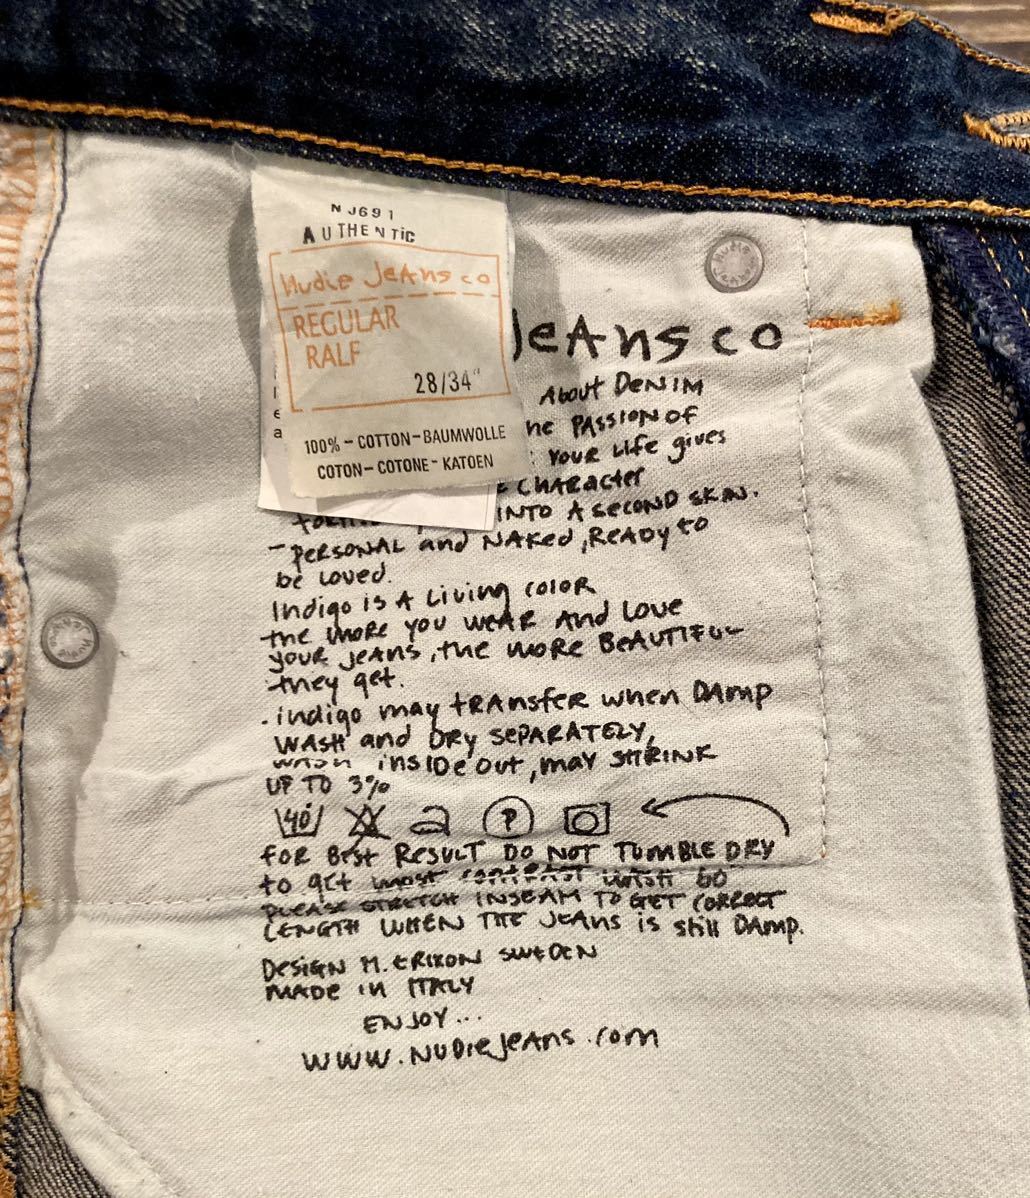 NJ691
AUTHENTiC
Nudie JeAns co
REGULAR
RALF
28/34"
100% - COTTON - BAUMWOLLE
COTON - COTONE - KATOEN
JeAns co
About DENIM
he PASSION OF
: YOUR Life gives
CHARActer
INTO A second SKIN.
- PERSONAL and NAKed, ReADy to
be Loved.
Indigo is A Living coloR
the more you weAR And Love
youR jeAns, the moRe BeAUTIFUL
they get.
. indigo may tRAnsfeR when DAmp
WASH and DRy sePARATELY,
wash insIDe out, may SHRINK
UP TO 3%
40 P
foR Best ResuLT DO NOT TUMBLE DRY
to get most contrast wash 60
PLEASE STRETCH INSEAM TO GET CORRECT
LENGTH WHEN THE JeAns is still DAmp.
DesiGN M. ERIXON SWEDEN
MADE in ITALY
ENJOY...
www.NUDieJeAns.com